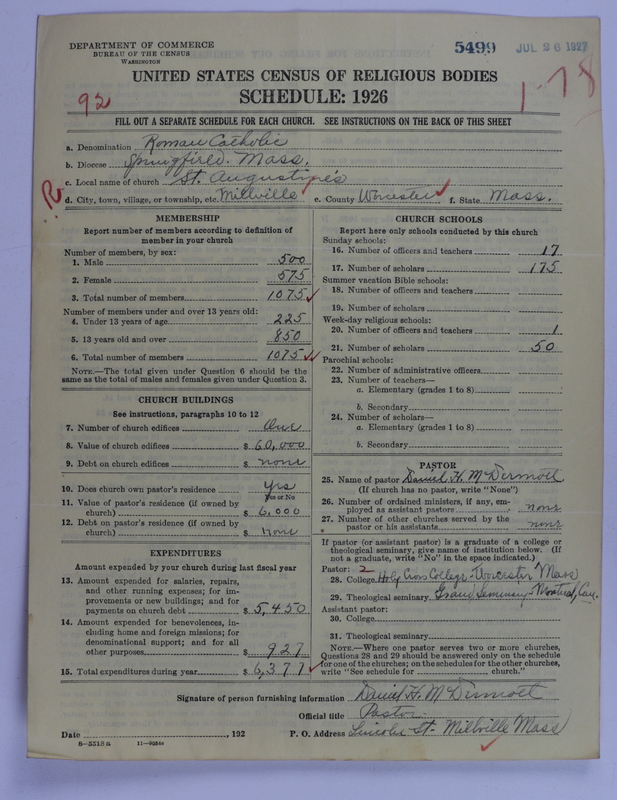 DEPARTMENT OF COMMERCE
BUREAU OF THE CENSUS
WASHINGTON
5499 JUL 26 1927
UNITED STATES CENSUS OF RELIGIOUS BODIES
SCHEDULE: 1926
92
1-78
FILL OUT A SEPARATE SCHEDULE FOR EACH CHURCH. SEE INSTRUCTIONS ON THE BACK OF THIS SHEET
a. Denomination Roman Catholic
b. Diocese Springfield. Mass.
c. Local name of church St. Augustine's
R
d. City, town, village, or township, etc. Millville e. County Worcester f. State Mass.
MEMBERSHIP
Report number of members according to definition of
member in your church
Number of members, by sex:
1. Male 500
2. Female 575
3. Total number of members 1075
Number of members under and over 13 years old:
4. Under 13 years of age 225
5. 13 years old and over 850
6. Total number of members 1075
NOTE.—The total given under Question 6 should be
same as the total of males and females given under Question 3.
CHURCH BUILDINGS
See instructions, paragraphs 10 to 12
7. Number of church edifices One
8. Value of church edifices $ 60,000
9. Debt on church edifices $ none
10. Does church own pastor's residence yes
Yes or No
11. Value of pastor's residence (if owned by
church) $ 6,000
12. Debt on pastor's residence (if owned by
church) $ none
EXPENDITURES
Amount expended by your church during last fiscal year
13. Amount expended for salaries, repairs,
and other running expenses; for im-
provements or new buildings; and for
payments on church debt $ 5,450
14. Amount expended for benevolences, in-
cluding home and foreign missions; for
denominational support; and for all
other purposes $ 927
15. Total expenditures during year $ 6,377
CHURCH SCHOOLS
Report here only schools conducted by this church
Sunday schools:
16. Number of officers and teachers 17
17. Number of scholars 175
Summer vacation Bible schools:
18. Number of officers and teachers
19. Number of scholars
Week-day religious schools:
20. Number of officers and teachers 1
21. Number of scholars 50
Parochial schools:
22. Number of administrative officers
23. Number of teachers—
a. Elementary (grades 1 to 8)
b. Secondary
24. Number of scholars—
a. Elementary (grades 1 to 8)
b. Secondary
PASTOR
25. Name of pastor Daniel H. McDermott
(If church has no pastor, write "None")
26. Number of ordained ministers, if any, em-
ployed as assistant pastors none
27. Number of other churches served by the
pastor or his assistants none
If pastor (or assistant pastor) is a graduate of a college or
theological seminary, give name of institution below. (If
not a graduate, write "No" in the space indicated.)
Pastor: 2
28. College Holy Cross College - Worcester Mass
29. Theological seminary Grand Seminary - Montreal, Can.
Assistant pastor:
30. College
31. Theological seminary
NOTE.—Where one pastor serves two or more churches,
Questions 28 and 29 should be answered only on the schedule
for one of the churches; on the schedules for the other churches,
write "See schedule for church."
Signature of person furnishing information Daniel H. McDermott
Official title Pastor
Date , 192 P. O. Address Lincoln St. Millville Mass
8-5513a